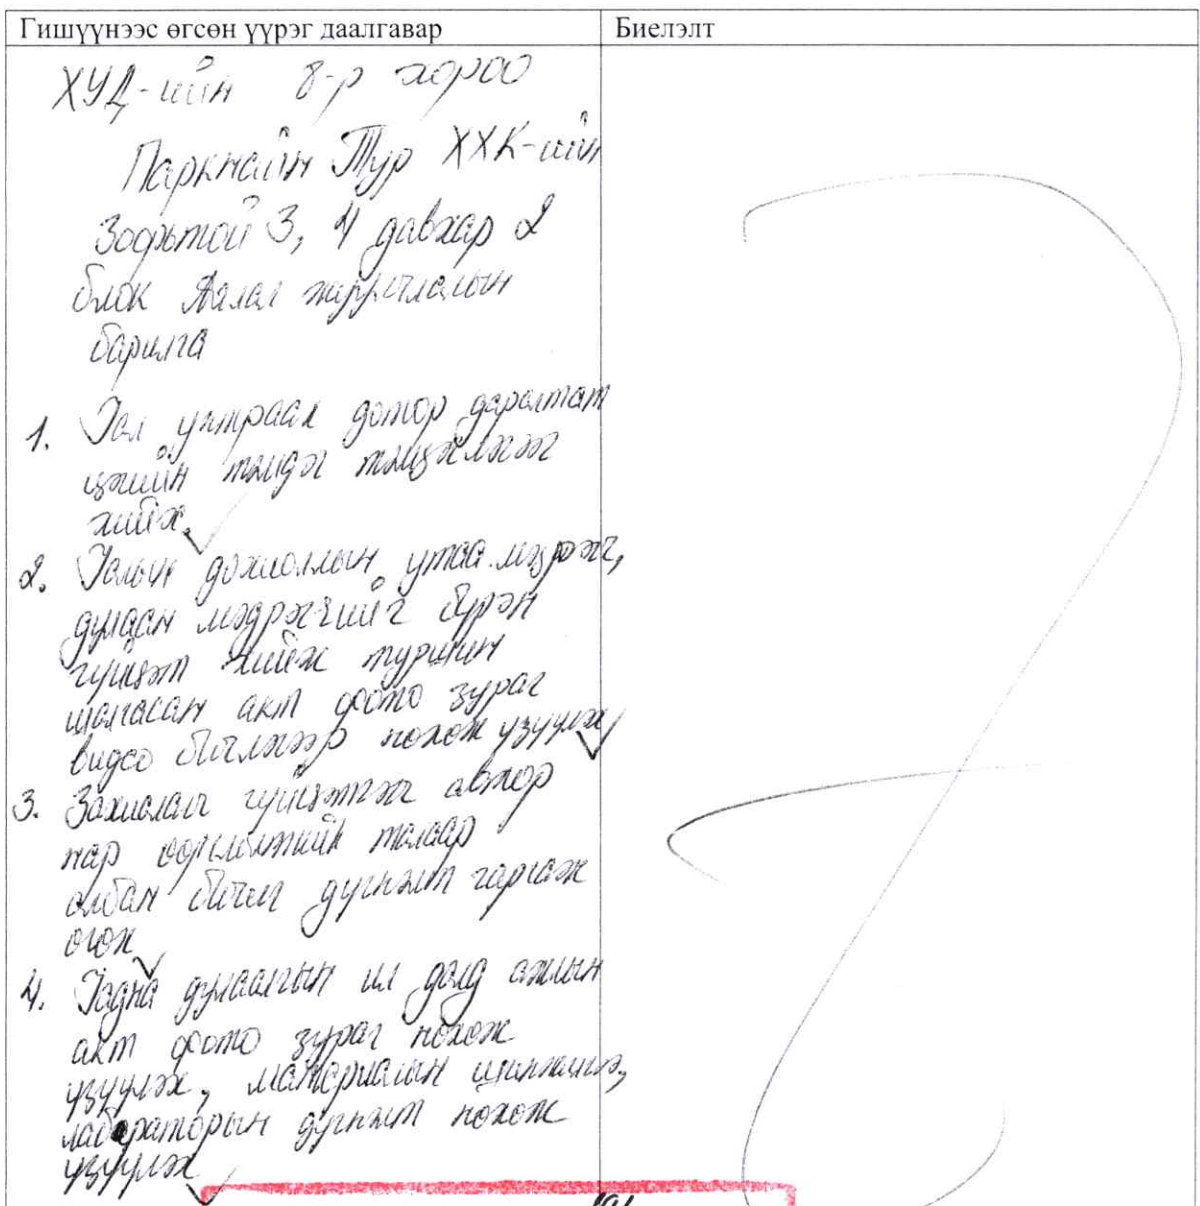 Гишүүнээс өгсөн үүрэг даалгавар
Биелэлт
ХУД-ийн 8-р хороо
Паркнайн Тур ХХК-ийн
Зоорьтой 3, 4 давхар 2
блок Аялал жуулчлалын
барилга
1. Гал унтраах дотор даралтат
цэгийн тэмдэг тэмдэглэгээг
хийх.
2. Галын дохиоллын утаа мэдрэгч,
дулаан мэдрэгчийг бүрэн
гүйцэт хийж туршин
шалгасан акт фото зураг
видео бичлэгээр нөхөж үзүүлэх
3. Захиалагч гүйцэтгэгч автор
нар өөрчлөлтийн талаар
албан бичиг дүгнэлт гаргаж
өгөх
4. Гадна дулаалгын ил далд ажлын
акт фото зураг нөхөж
үзүүлэх, материалын шинжилгээ,
лабораторын дүгнэлт нөхөж
үзүүлэх